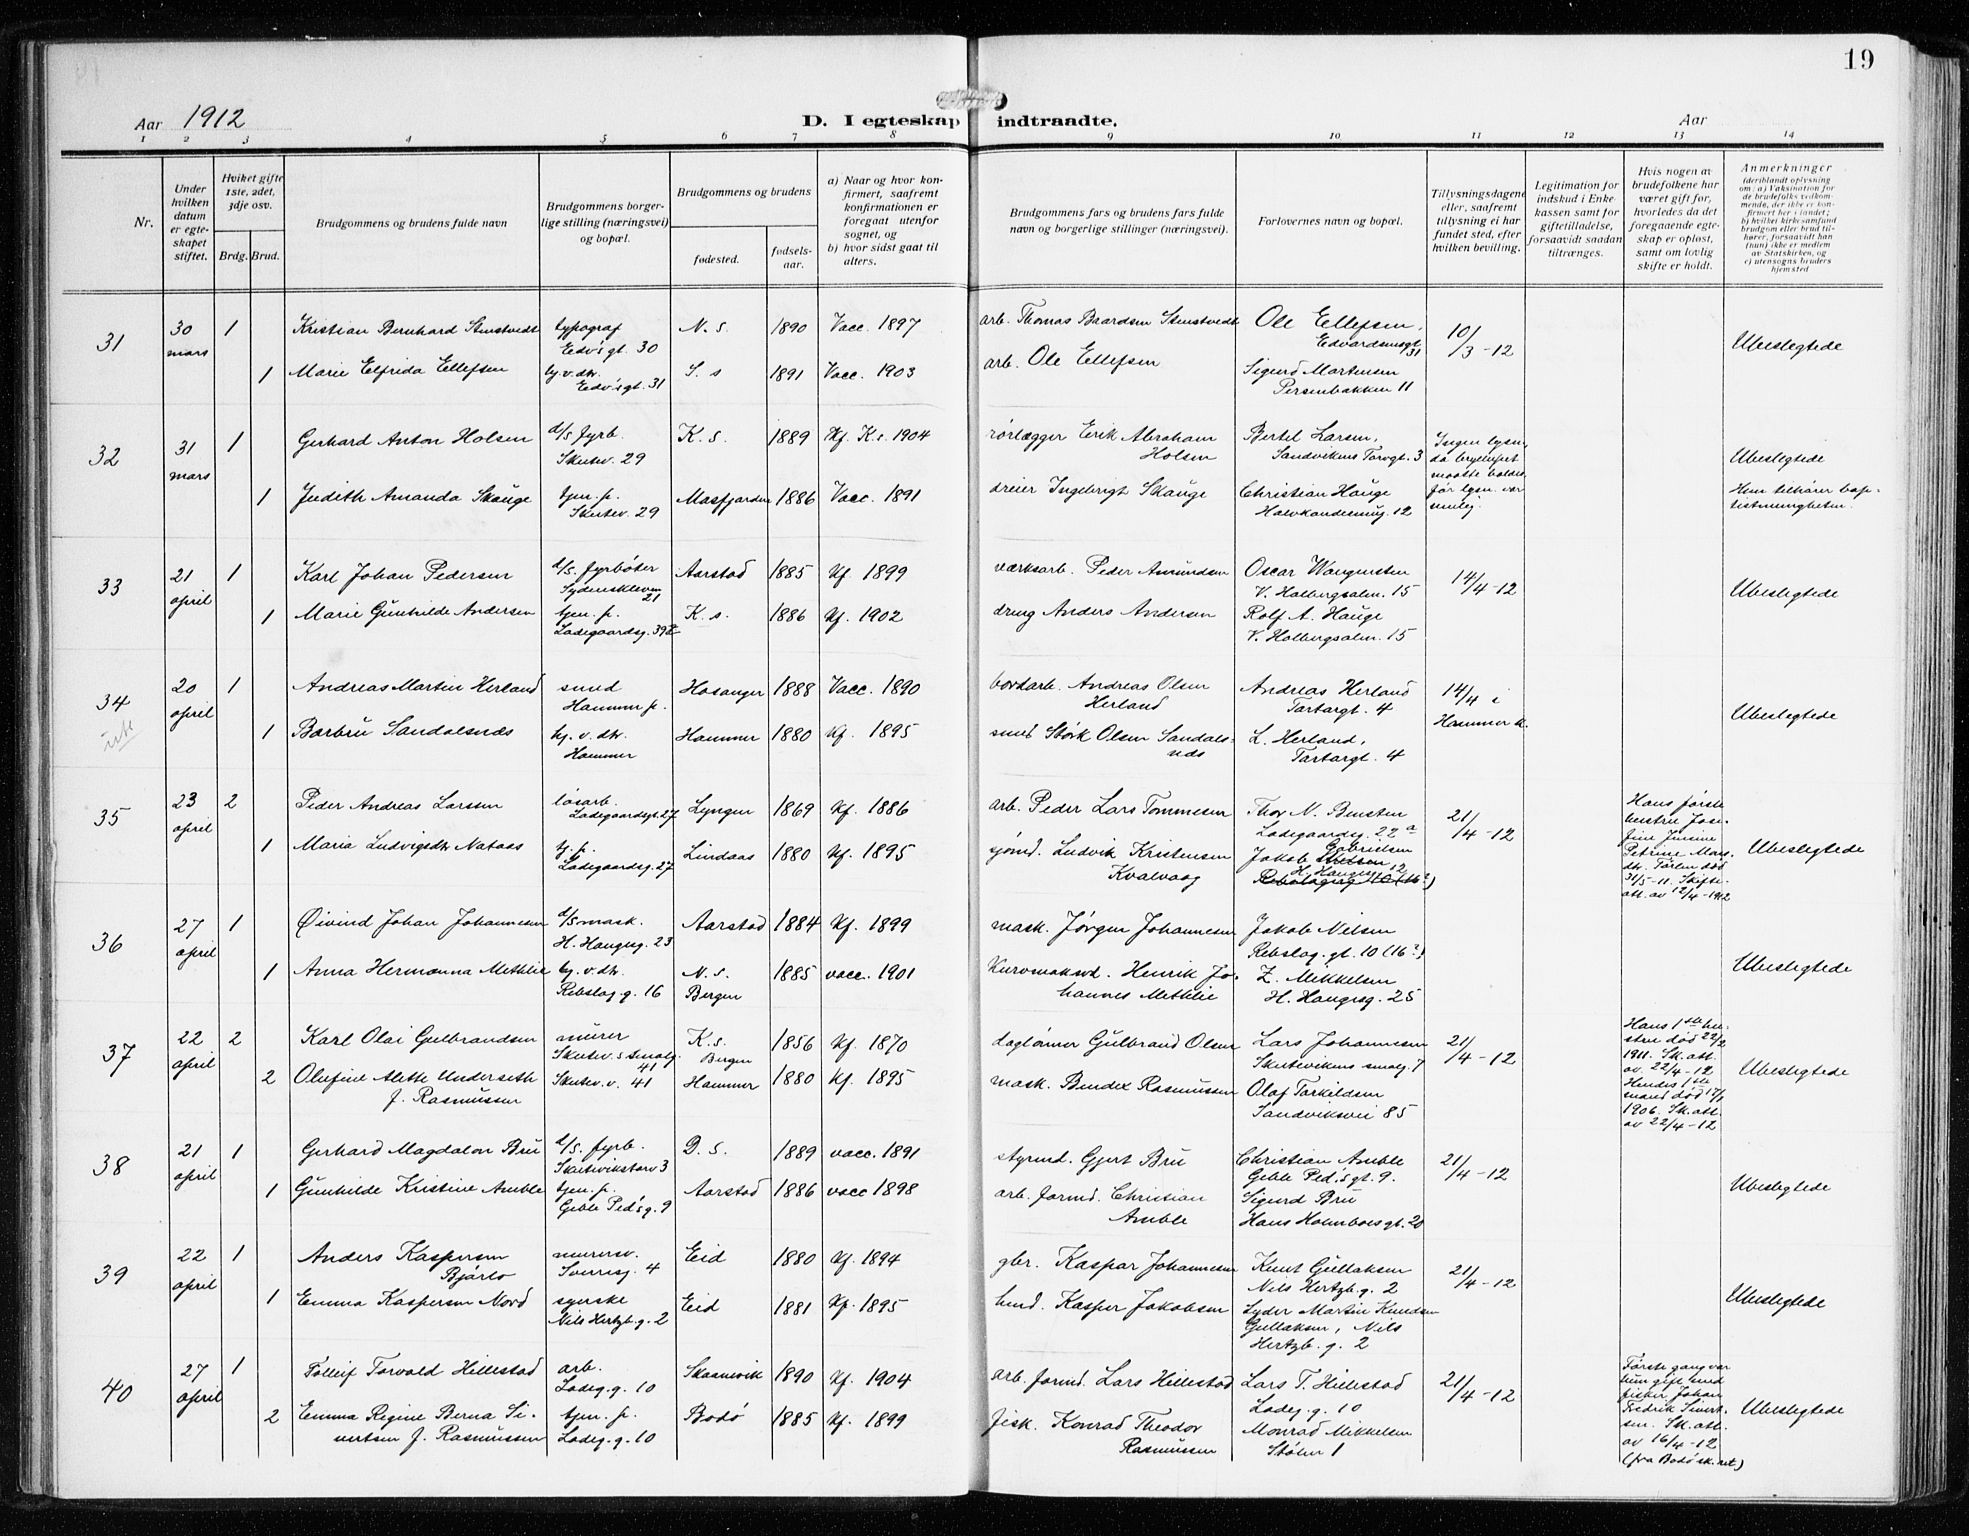 19
Aar 1912
D. I egteskap indtraadte.
Aar
1 2 3 4 5 6 7 8 9 10 11 12 13 14
Nr.
Under hvilken datum er egteskapet stiftet.
Hviket gifte 1ste, 2det, 3dje osv.
Brdg. Brud.
Brudgommens og brudens fulde navn
Brudgommens borgerlige stilling (næringsvei) og bopæl.
Brudgommens og brudens
fødested.
fødsels-aar.
a) Naar og hvor konfirmert, saafremt konfirmationen er foregaat utenfor sognet, og
b) hvor sidst gaat til alters.
Brudgommens fars og brudens fars fulde navn og borgerlige stillinger (næringsvei).
Forlovernes navn og bopæl.
Tillysningsdagene eller, saafremt tillysning ei har fundet sted, efter hvilken bevilling.
Legitimation for indskud i Enkekassen samt for giftetilladelse, forsaavidt saadan tiltrænges.
Hvis nogen av brudefolkene har været gift før, hvorledes da det foregaaende egteskap er opløst, samt om lovlig skifte er holdt.
Anmerkninger
(deriblandt oplysning om: a) Vaksination for de brudefolks vedkommende, der ikke er konfirmert her i landet; b) hvilket kirkesamfund brudgom eller brud tilhører, forsaavidt han (hun) ikke er medlem av Statskirken, og c) utensogns bruders hjemsted
31 30 mars 1 Kristian Bernhard Stenstvedt typograf Edv's gt. 30 N. s. 1890 Vacc. 1897 arb. Thomas Baardsen Stenstvedt Ole Ellefsen, Edvardsensgt. 31 10/3-12 Ubeslegtede
1 Marie Elfrida Ellefsen hj. v. dtr. Edv'sgt. 31 S. s 1891 Vacc. 1903 arb. Ole Ellefsen Sigurd Martensen Persenbakken 11
32 31 mars 1 Gerhard Anton Holsen d/s fyrb. Skutev. 29 K. s. 1889 Kf. K.s. 1904 rørlægger Erik Abraham Holsen Bertel Larsen, Sandvikens Torvgt. 3 Ingen lysn. da bryllupet maatte holdes før lysn. var mulig. Ubeslegtede
1 Judith Amanda Skauge tjen. p. Skutev. 29 Masfjorden 1886 Vacc. 1891 dreier Ingebrigt Skauge Christian Hauge 12 Hun tilhører baptistmenigheten.
33 21 april 1 Karl Johan Pedersen d/s. fyrbøter 21 Aarstad 1885 Kf. 1899 værksarb. Peder Amundsen Oscar Wangensten V. Holbergsalm. 15 14/4-12 Ubeslegtede
1 Marie Gunhilde Andersen tjen. p. Ladegaardsg. 39 K. s. 1886 Kf. 1902 dreng Anders Andersen Rolf A. Hauge V. Holbergsalm. 15
34 20 april 1 Andreas Martin Herland smed Hammer p. Hosanger 1888 Vacc. 1890 bordarb. Andreas Olsen Herland Andreas Herland Tartargt. 4 14/4 i Hammer k. Ubeslegtede
1 Barbru Sandalsnæs hj. v. dtr. Hammer Hammer 1880 Kf. 1895 smed Størk Olsen Sandalsnæs L. Herland, Tartargt. 4
35 23 april 2 Peder Andreas Larsen løsarb. Ladegaardsgt. 27 Lyngen 1869 Kf. 1886 arb. Peder Lars Tommesen Thor N. Bensten Ladegaardsg. 22 a 21/4-12 Hans første hustru Petrine død 31/5-11. Skifteatt. av 12/4-1912 Ubeslegtede
1 Maria Ludvigsdtr. Nataas hj. p. Ladegaardsg. 27 Lindaas 1880 Kf. 1895 sjømd. Ludvik Kristensen Kvalvaag Jakob Gabrielsen H. Haugesg. 12
36 27 april 1 Øivind Johan Johannesen d/s mask. H. Haugesg. 23 Aarstad 1884 Kf. 1899 mask. Jørgen Johannesen Jakob Nilsen Rebslag. gt. 10 (16?) Ubeslegtede
1 Anna Hermanna Methlie hj. v. dtr. Rebslag. g. 16 N. s. Bergen 1885 vacc. 1901 Kurvmakerd. Henrik Johannes Methlie Z. Mikkelsen H. Haugesg. 25
37 22 april 2 Karl Olai Gulbrandsen murer Skutev. s smalg. 41 K. s. Bergen 1856 Kf. 1870 dagløner Gulbrand Olsen Lars Johannesen Skutevikens smalg. 7 21/4-12 Hans 1ste hustru død 22/2 1911. Sk. att. av 22/4-12 Hendes 1ste mand død 17/1 1906. Sk. att. av 22/4-12 Ubeslegtede
2 Olufine Alette Underseth f. Rasmussen Skutev. v. 41 Hammer 1880 Kf. 1895 mask. Bendex Rasmussen Olaf Torkildsen Sandviksvei 85
38 21 april 1 Gerhard Magdalon Bru d/s. fyrb. Skutevikstorv 3 D. s. 1889 vacc. 1891 styrmd. Gjert Bru Christian Amble Geble Ped.s gt. 9. 21/4-12 Ubeslegtede
1 Gunhilde Kristine Amble tjen. p. Geble Ped's g. 9 Aarstad 1886 vacc 1898 arb. formd. Christian Amble Sigurd Bru Hans Holmboesgt. 20
39 22 april 1 Anders Kaspersen Bjørlo murersv. Sverresg. 4 Eid 1880 Kf. 1894 gbr. Kaspar Johannesen Knut Gullaksen Nils Hertzb. g. 2 21/4-12 Ubeslegtede
1 Emma Kaspersen Nord syerske Nils Hertzb. g. 2 Eid 1881 Kf. 1895 hmd. Kasper Jakobsen Lyder Martin Knudsen Gullaksen, Nils Hertzb. g. 2
40 27 april 1 Tolleif Torvald Hillestad arb. Ladeg. g. 10 Skaanevik 1890 Kf. 1904 arb. formd. Lars Hillestad Lars T. Hillestad Ladeg. g. 10 21/4-12 Første gang var hun gift med fisker Johan Fredrik Sivertsen. Sk. att. av 16/4-12 (fra Bodø sk. ret) Ubeslegtede
2 Emma Regine Berna Sivertsen f. Rasmussen tjen. p. Ladeg. g. 10 Bodø 1885 Kf. 1899 fisk. Konrad Theodor Rasmussen Monrad Mikkelsen Stølen 1